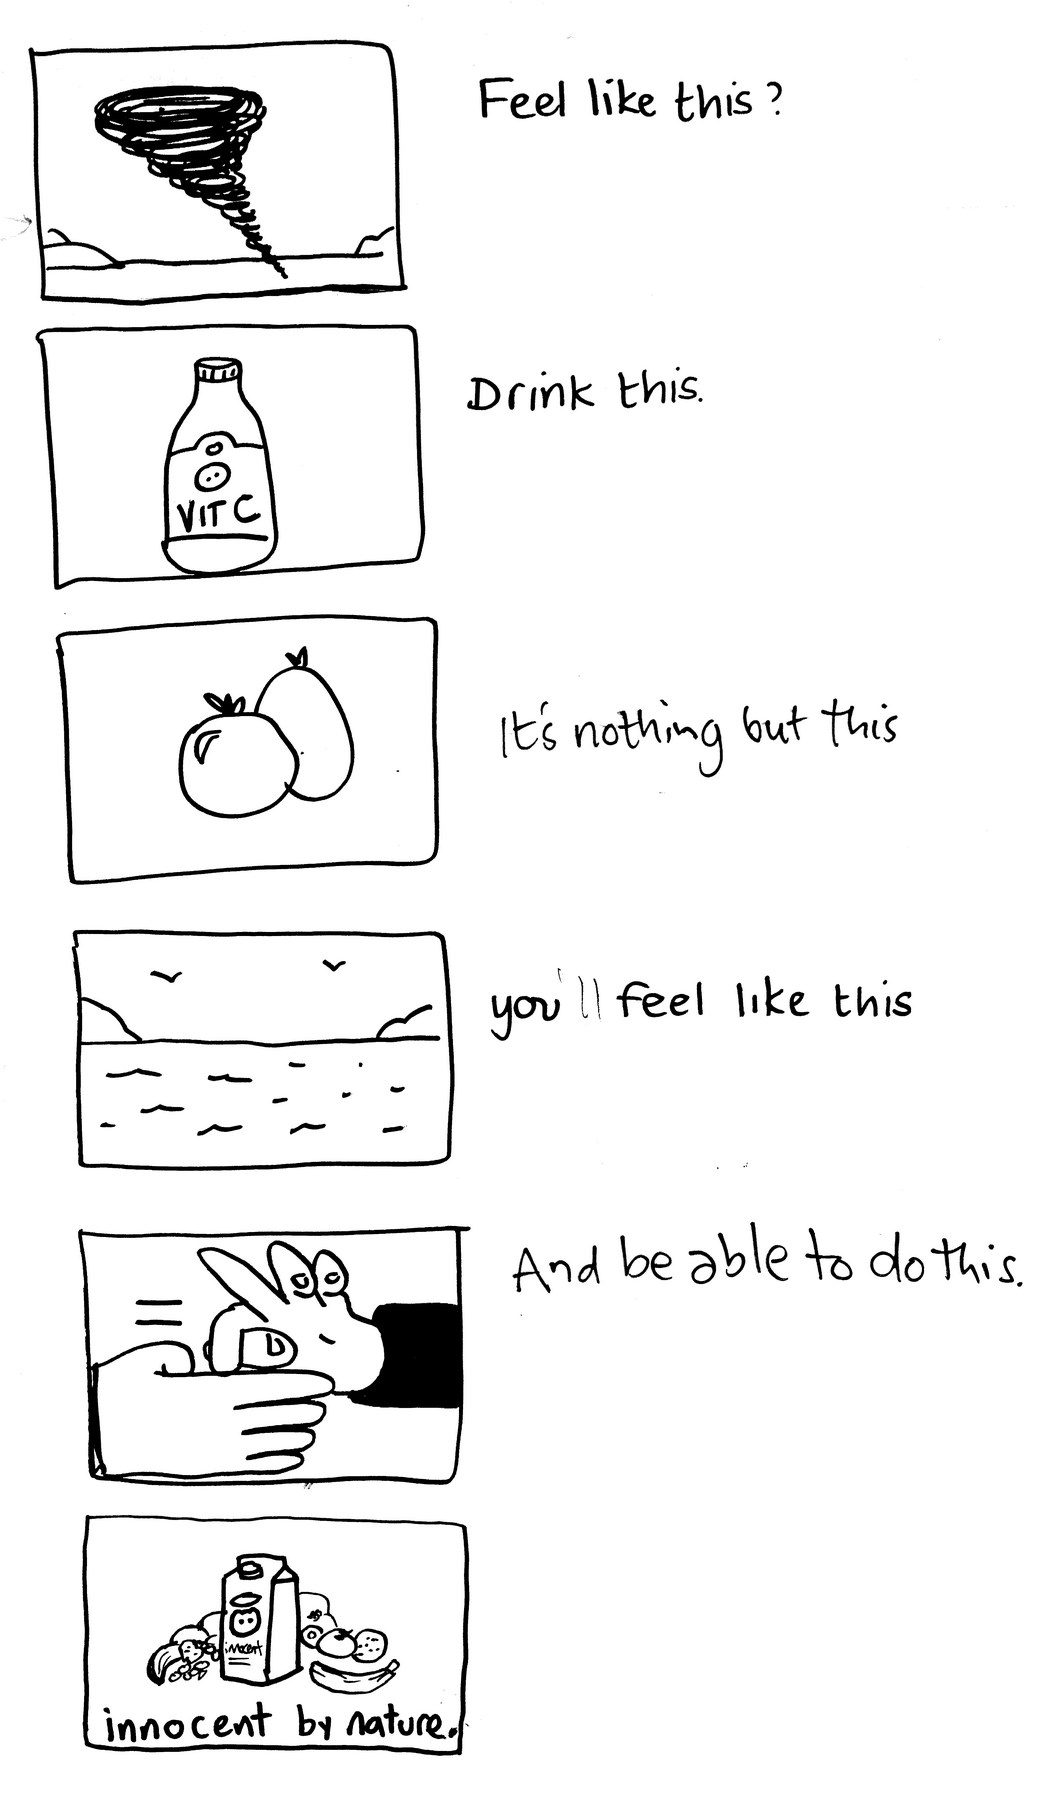 Feel like this?
Drink this.
VIT C
It's nothing but this
you'll feel like this
And be able to do this.
innocent
innocent by nature.